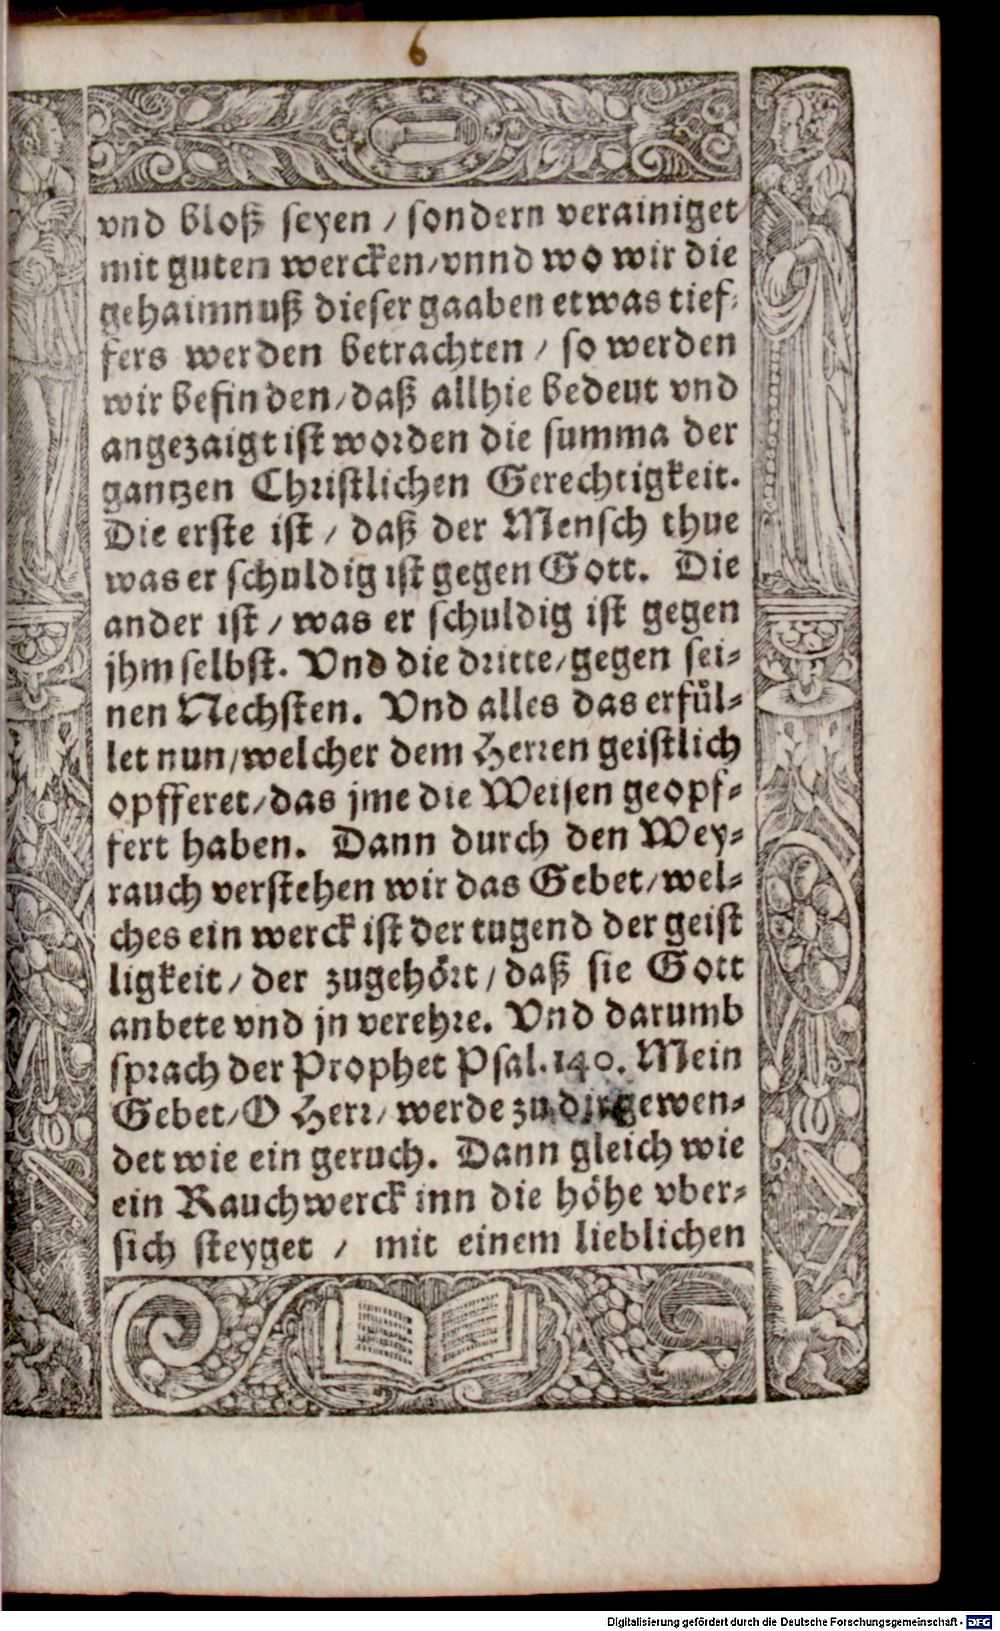 6
vnd bloß seyen / sondern verainiget
mit guten wercken/vnnd wo wir die
gehaimnuß dieser gaaben etwas tief-
fers werden betrachten / so werden
wir befinden/daß allhie bedeut vnd
angezaigt ist worden die summa der
gantzen Christlichen Gerechtigkeit.
Die erste ist / daß der Mensch thue
was er schuldig ist gegen Gott. Die
ander ist / was er schuldig ist gegen
jhm selbst. Vnd die dritte/gegen sei-
nen Nechsten. Vnd alles das erfuͤl-
let nun/welcher dem Herren geistlich
opfferet/das jme die Weisen geopf-
fert haben. Dann durch den Wey-
rauch verstehen wir das Gebet/wel-
ches ein werck ist der tugend der geist
ligkeit / der zugehoͤrt / daß sie Gott
anbete vnd jn verehre. Vnd darumb
sprach der Prophet Psal.140. Mein
Gebet/O Herr/werde zu dir gewen-
det wie ein geruch. Dann gleich wie
ein Rauchwerck inn die hoͤhe vber-
sich steyget / mit einem lieblichen
Digitalisierung gefördert durch die Deutsche Forschungsgemeinschaft - DFG